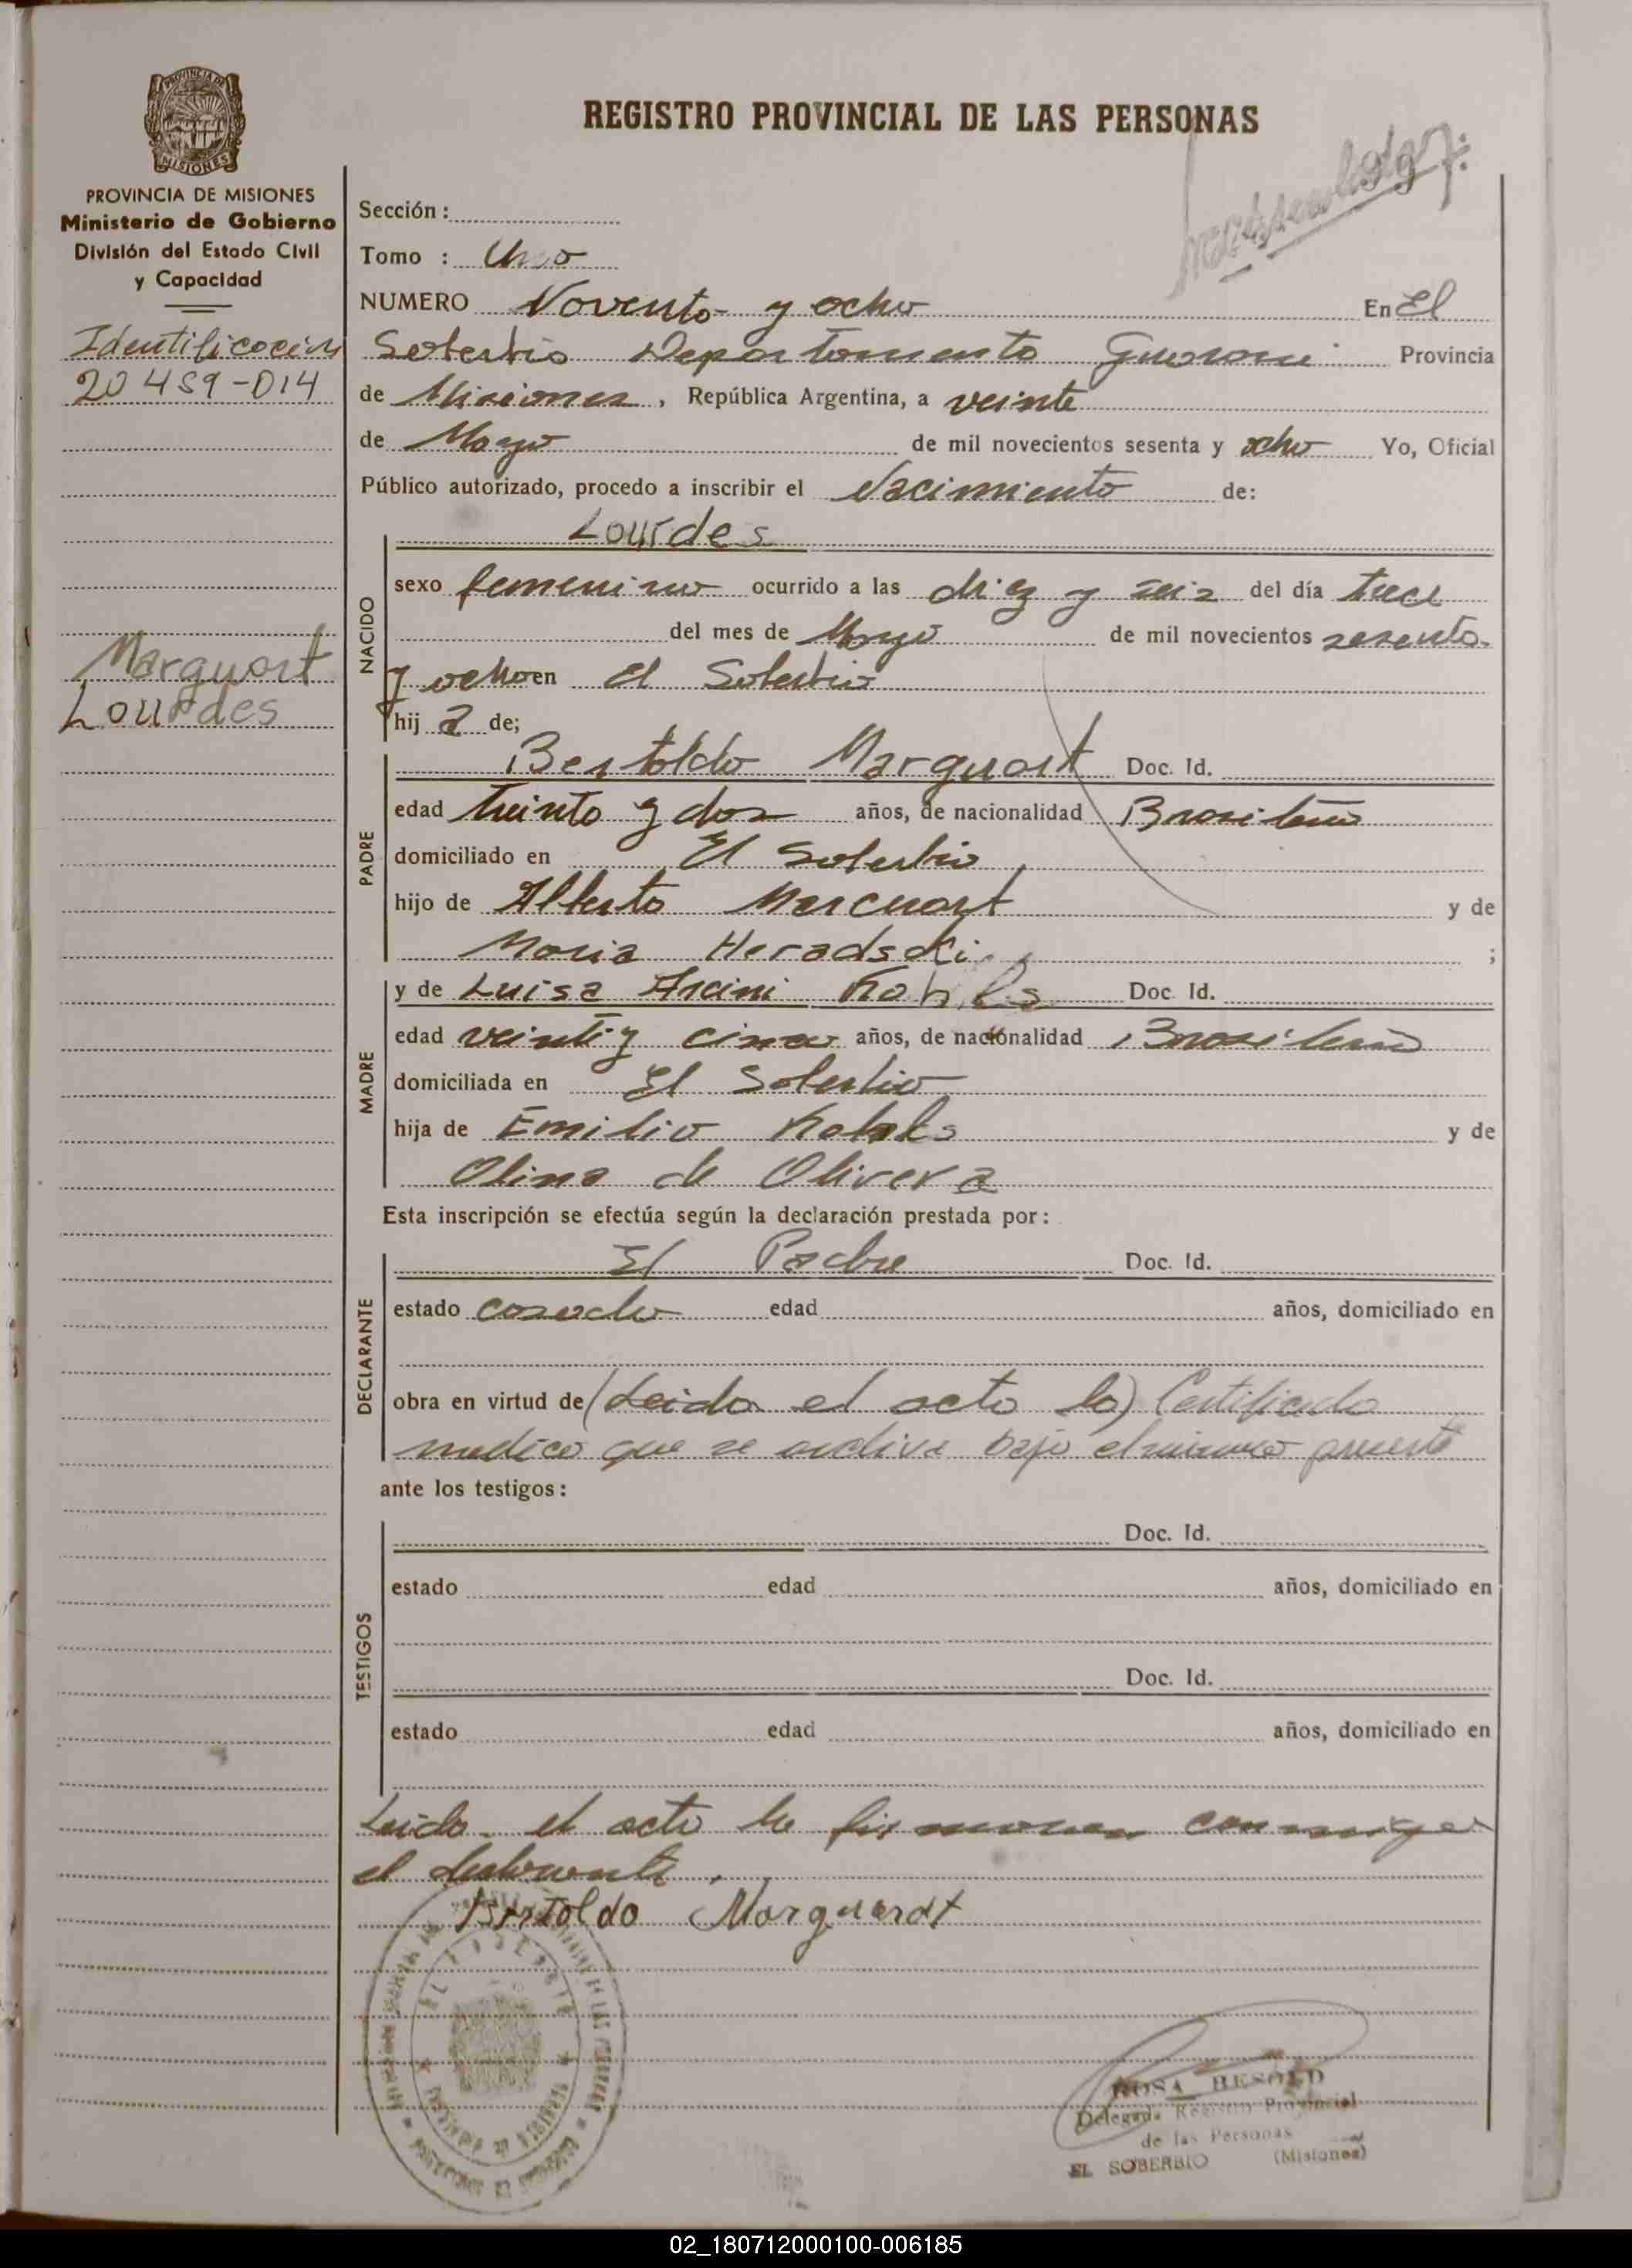 PROVINCIA DE MISIONES
Ministerio de Gobierno
División del Estado Civil
y Capacidad
Identificocion
20 459-014
Marguort
Lourdes
REGISTRO PROVINCIAL DE LAS PERSONAS
Sección :
Tomo : Uno
NUMERO Novento y ocho En El
Soberbio Departomento Guarani Provincia
de Misiones , República Argentina, a veinte
de Mayo de mil novecientos sesenta y ocho Yo, Oficial
Público autorizado, procedo a inscribir el Nacimiento de:
NACIDO
Lourdes
sexo femenino ocurrido a las diez y seis del día trece
del mes de Mayo de mil novecientos sesenta
y ocho en El Soberbio
hij a de;
PADRE
Bertoldo Marguort Doc. Id.
edad treinta y dos años, de nacionalidad Brasilera
domiciliado en El Soberbio
hijo de Alberto Marcuort y de
Maria Heradski ;
MADRE
y de Luisa Arcini Kohls Doc. Id.
edad veinti y cinco años, de nacionalidad Brasilera
domiciliada en El Soberbio
hija de Emilio Kohls y de
Olina de Olivera
Esta inscripción se efectúa según la declaración prestada por :
DECLARANTE
El Padre Doc. Id.
estado casado edad años, domiciliado en
obra en virtud de (Leida el acta la) Certificado
medico que se archiva bajo el mismo
ante los testigos :
TESTIGOS
Doc. Id.
estado edad años, domiciliado en
Doc. Id.
estado edad años, domiciliado en
Leida el acta la firma conmigo
el declarante.
Bertoldo Marguardt
EL SOBERBIO
ROSA BESOLD
Delegada Registro Provincial
de las Personas
EL SOBERBIO (Misiones)
02_180712000100-006185